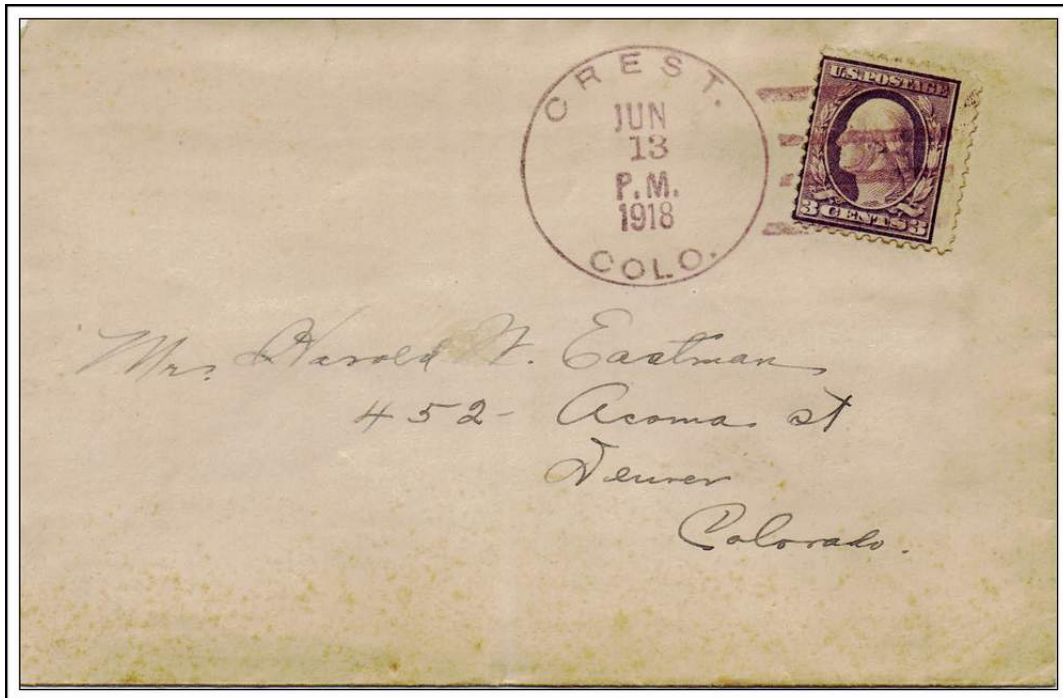 CREST.
JUN
13
P.M.
1918
COLO.
U.S. POSTAGE
3 CENTS 3
Mrs Harold W. Eastman
452- Acoma st
Denver
Colorado.